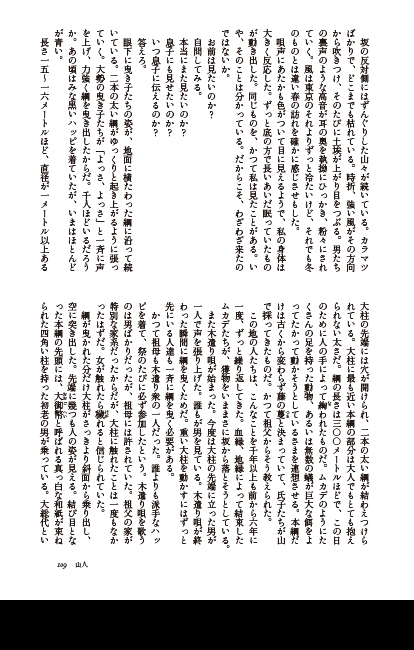 坂の反対側にはずんぐりした山々が続いている。カラマツ
ばかりで、どこまでも枯れている。時折、強い風がその方向
から吹きつけ、そのたびに土埃が上がり目をつぶる。男たち
の裏声のような高音が耳の奥を執拗にひっかき、粉々にされ
ていく。風は東京のそれよりずっと冷たいけど、それでも冬
のものとは違い春の訪れを確かに感じさせもした。
唄声にあたかも色がついて目に見えるようで、私の身体は
大きく反応した。ずっと底の方で長いあいだ眠っていたもの
が動き出した。同じものを、かつて私は見たことがある。い
や、そのことは分かっている。だからこそ、わざわざ来たの
ではないか。
お前は見たいのか？
自問してみる。
本当にまた見たいのか？
息子にも見せたいのか？
いつ息子に伝えるのか？
答えろ。
眼下に曳き子たちの姿が、地面に横たわった綱に沿って続
いている。二本の太い綱がゆっくりと起き上がるように張っ
ていく。大勢の曳き子たちが「よっさ、よっさ」と一斉に声
を上げ、力強く綱を曳き出したからだ。千人ほどいるだろう
か。あの頃はみな黒いハッピを着ていたが、いまはほとんど
が青い。
長さ一五〜一六メートルほど、直径が一メートル以上ある
大柱の先端には穴が開けられ、二本の太い綱が結わえつけら
れている。大柱に最も近い本綱の部分は大人でもとても抱え
られない太さだ。綱の長さは三〇〇メートルほどで、この日
のために人の手によって綯われたものだ。ムカデのようにた
くさんの足を持った動物、あるいは無数の蟻が巨大な餌をよ
ってたかって動かそうとしているさまを連想させる。本綱だ
けは古くから変わらず藤の蔓と決まっていて、氏子たちが山
で採ってきたものだ。かつて祖父からそう教えられた。
この地の人たちは、こんなことを千年以上も前から六年に
一度、ずっと繰り返してきた。血縁、地縁によって結束した
ムカデたちが、獲物をいままさに坂から落とそうとしている。
また木遣り唄が始まった。今度は大柱の先端に立った男が
一人で声を張り上げた。誰もが男を見ている。木遣り唄が終
わった瞬間に綱を曳くためだ。重い大柱を動かすにはずっと
先にいる人達も一斉に綱を曳く必要がある。
かつて祖母も木遣り衆の一人だった。誰よりも派手なハッ
ピを着て、祭のたびに必ず参加したという。木遣り唄を歌う
のは男ばかりだったが、祖母には許されていた。祖父の家が
特別な家系だったからだが、大柱に触れたことは一度もなか
ったはずだ。女が触れたら穢れると信じられていた。
綱が曳かれた分だけ大柱がさっきより斜面から乗り出し、
空に突き出した。先端に幾つも人の姿が見える。結び目とな
った本綱の先頭には、大御幣と呼ばれる真っ白な和紙が束ね
られた四角い柱を持った初老の男が乗っている。大総代とい
109 山人